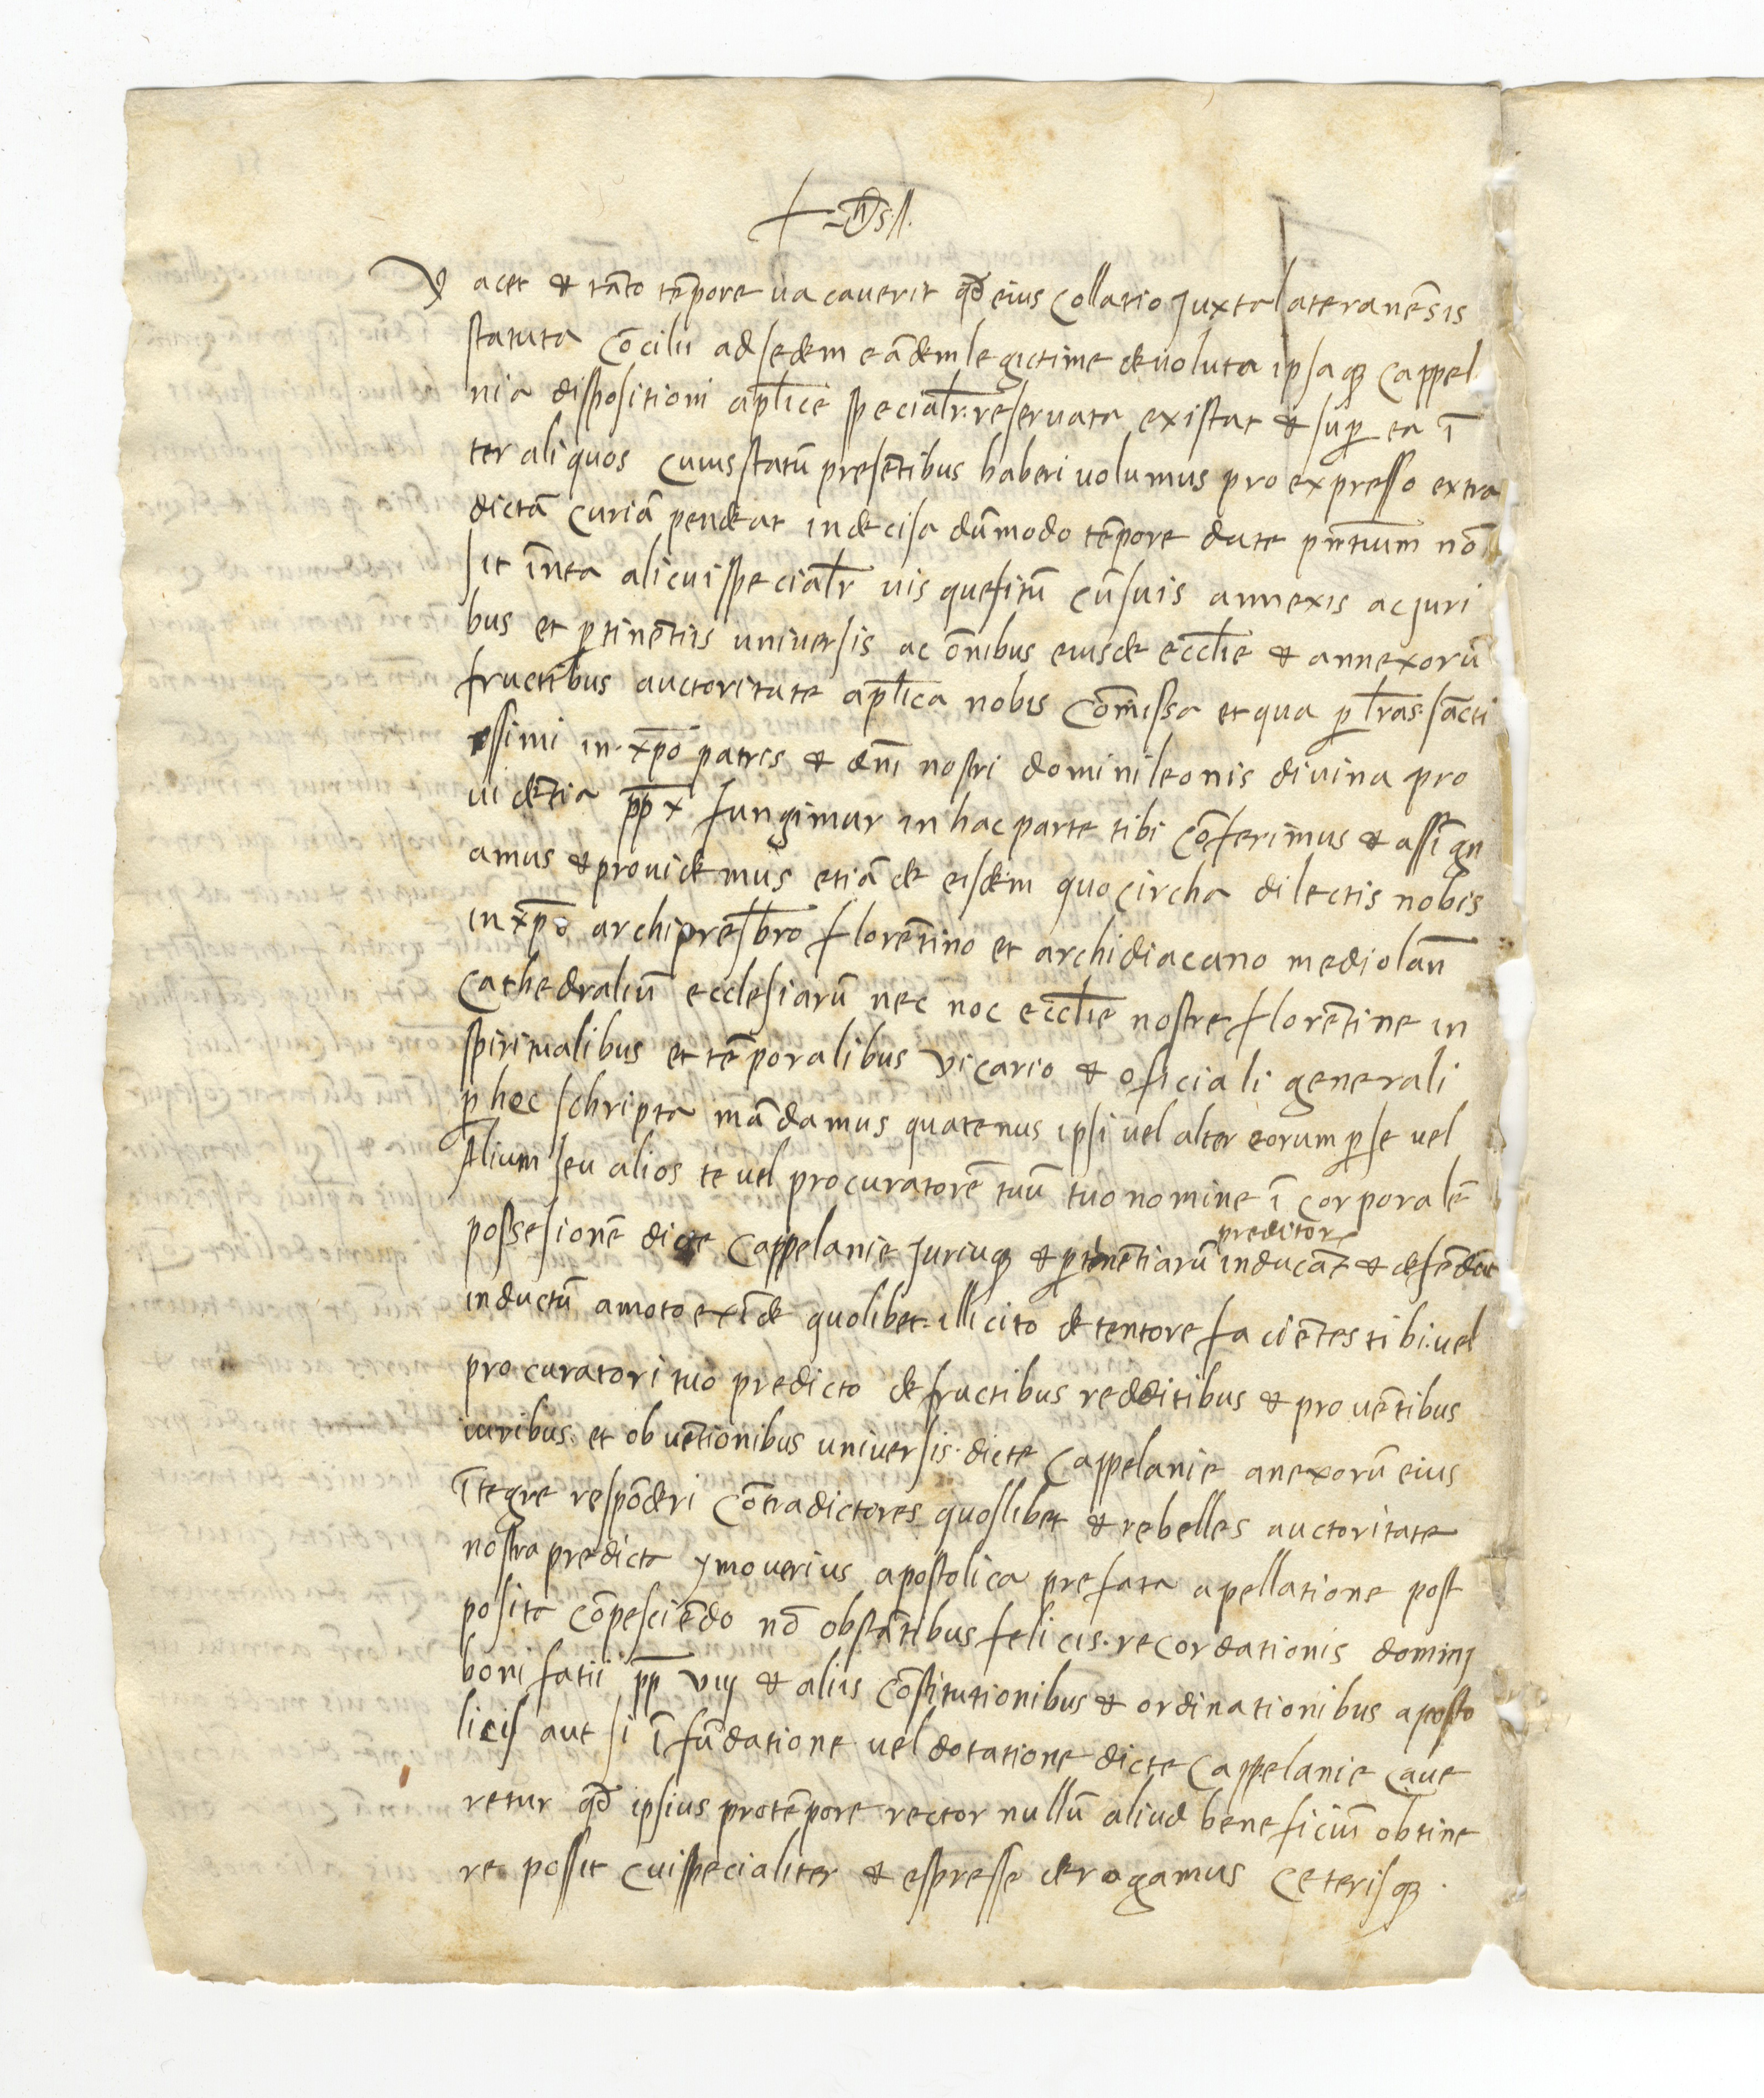 yhs
Vacet & tãto tẽpore uacauerit qđ eius Collatio Juxta lateranẽsis
statuta Cõcilii ad sedem eãdem legictime deuoluta ipsaq; Cappel
nia dispositioni aplice specialr reseruata existat & sup ea ĩ
ter aliquos Cuius statũ presẽtibus haberi uolumus pro expresso extra
dictã Curiã pendeat indecisa dũmodo tẽpore date pñtium nõ
sit ĩ ea alicui specialr uis quesitũ Cũ suis annexis ac juri
bus et ptinẽtiis universis ac õnibus eiusde ecclie & annexorũ
fructibus auctoritate aplica nobis Cõmissa et qua p lras sãcti
ssimi in xpõ patris & dñi nostri domini leonis divina pro
uidẽtia pp x fungimur in hac parte tibi Cõferimus & assign
amus & prouidemus etiã de eisdem quocircha dilectis nobis
in xpõ archipresbro florẽtino et archidiacano mediolañ
Cathedraliũ ecclesiarũ nec noc ecclie nostre florẽtine in
spiritualibus et tẽporalibus vicario & oficiali generali
p hec schripta mãdamus quatenus ipsi uel alter eorum p se uel
Alium seu alios te uel procuratorẽ tuũ tuo nomine ĩ corporalẽ
possesionẽ dicte Cappelanie juriuq; & ptinẽtiarũ preditor inducãt & defẽdãt
inductũ amoto exĩde quolibet illicito detentore faciẽtes tibi uel
procuratori tuo predicto de fructibus redditibus & prouẽtibus
iuribus et obuẽtionibus universis dicte Cappelanie anexorũ eius
ĩtegre respõderi Cõtradictores quoslibet & rebelles auctoritate
nostra predicta ymouerius apostolica prefata apellatione post
posita Cõpesciẽdo nõ obstãtibus felicis recordationis dominj
bonifatii pp viij & aliis Cõstitutionibus & ordinationibus aposto
licis aut si ĩ fũdatione uel dotatione dicte Cappelanie Caue
retur qđ ipsius pro tẽpore rector nullũ aliud beneficiũ obtine
re possit cui specialiter & espresse derogamus Ceterisq;